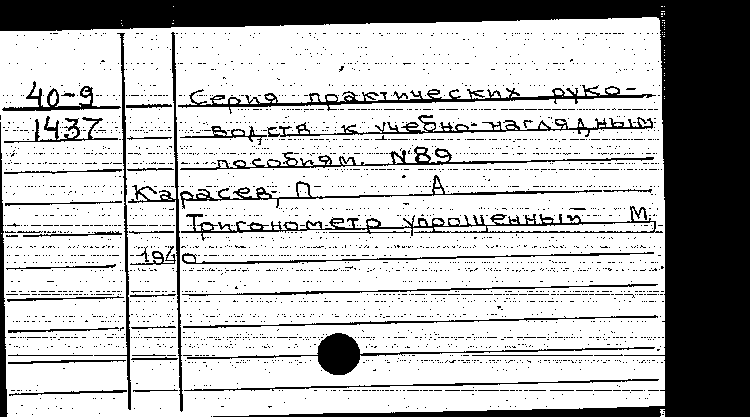 40-9 Серия практических руко-
1437 водств к учебно-наглядным
пособиям. №89
Карасев, П. А
Тригонометр упрощенный М,
1940